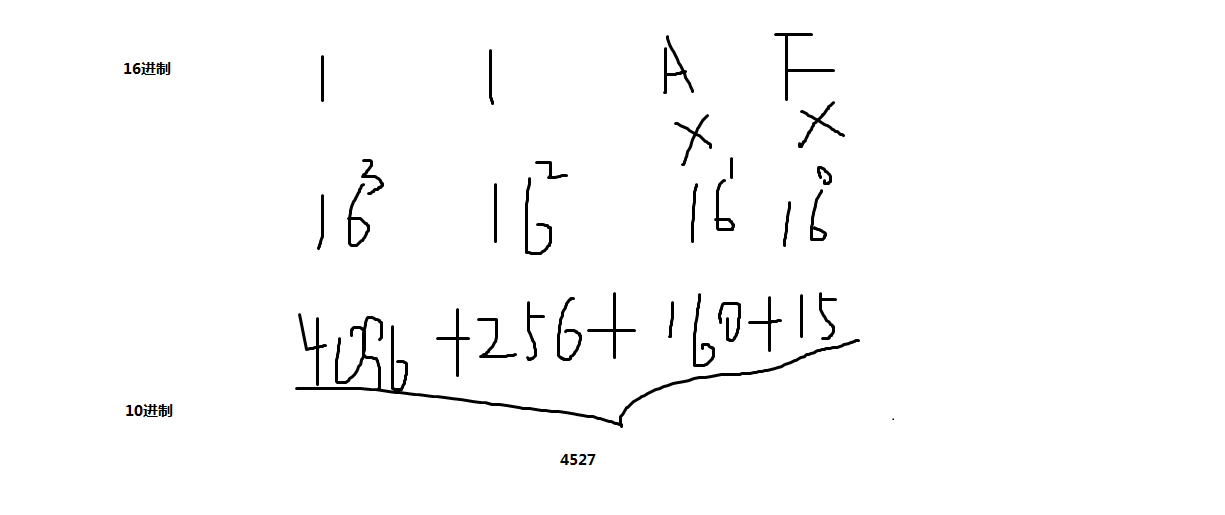 16进制 1 1 A F
× ×
16³ 16² 16¹ 16⁰
4096 + 256 + 160 + 15
10进制
4527